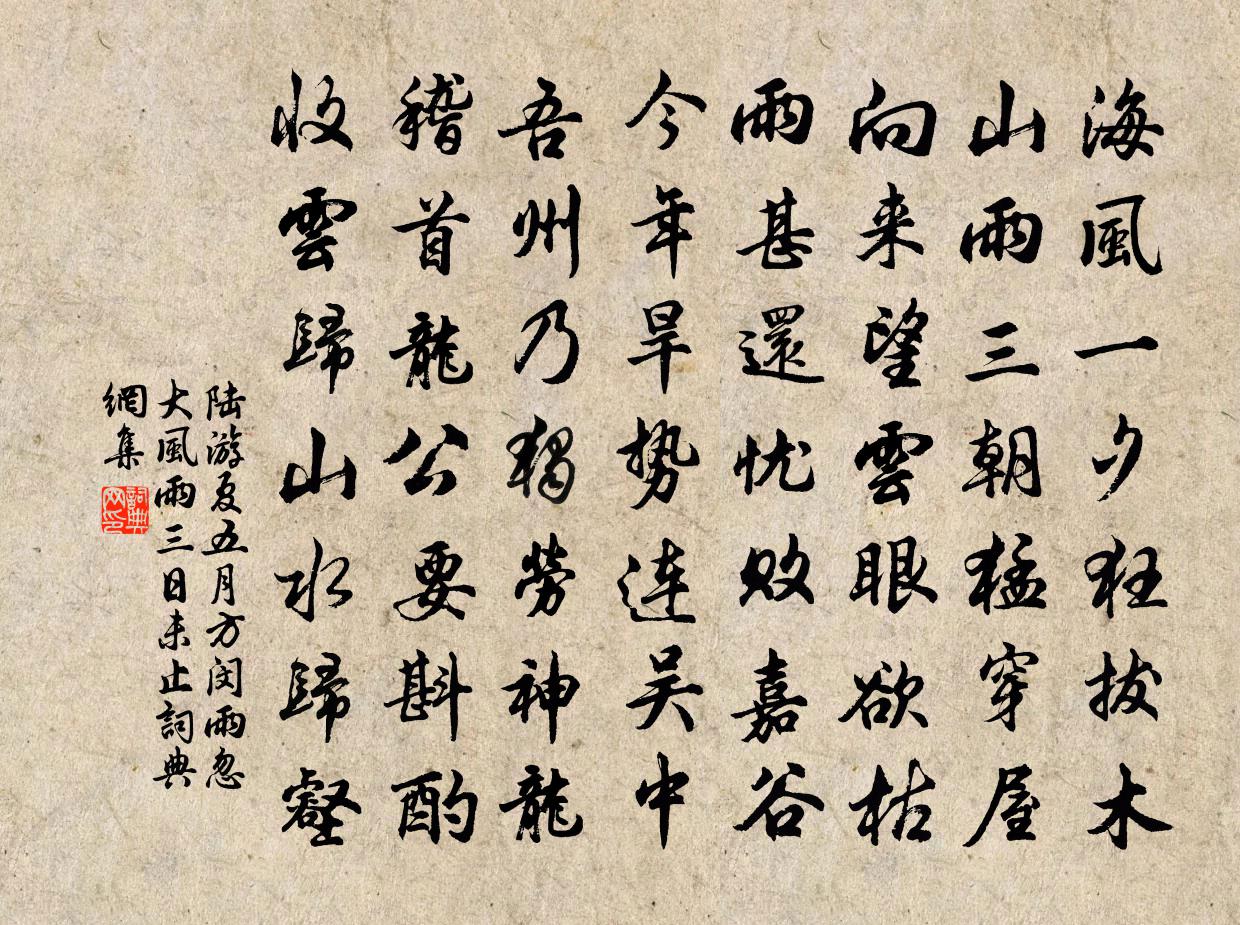 海風一夕狂拔木
山雨三朝猛穿屋
向来望雲眼欲枯
雨甚還忧敗嘉谷
今年旱勢连吴中
吾州乃獨勞神龍
稽首龍公要斟酌
收雲歸山水歸壑
陆游夏五月方闵雨忽
大風雨三日未止詞典
網集
詞典
网印